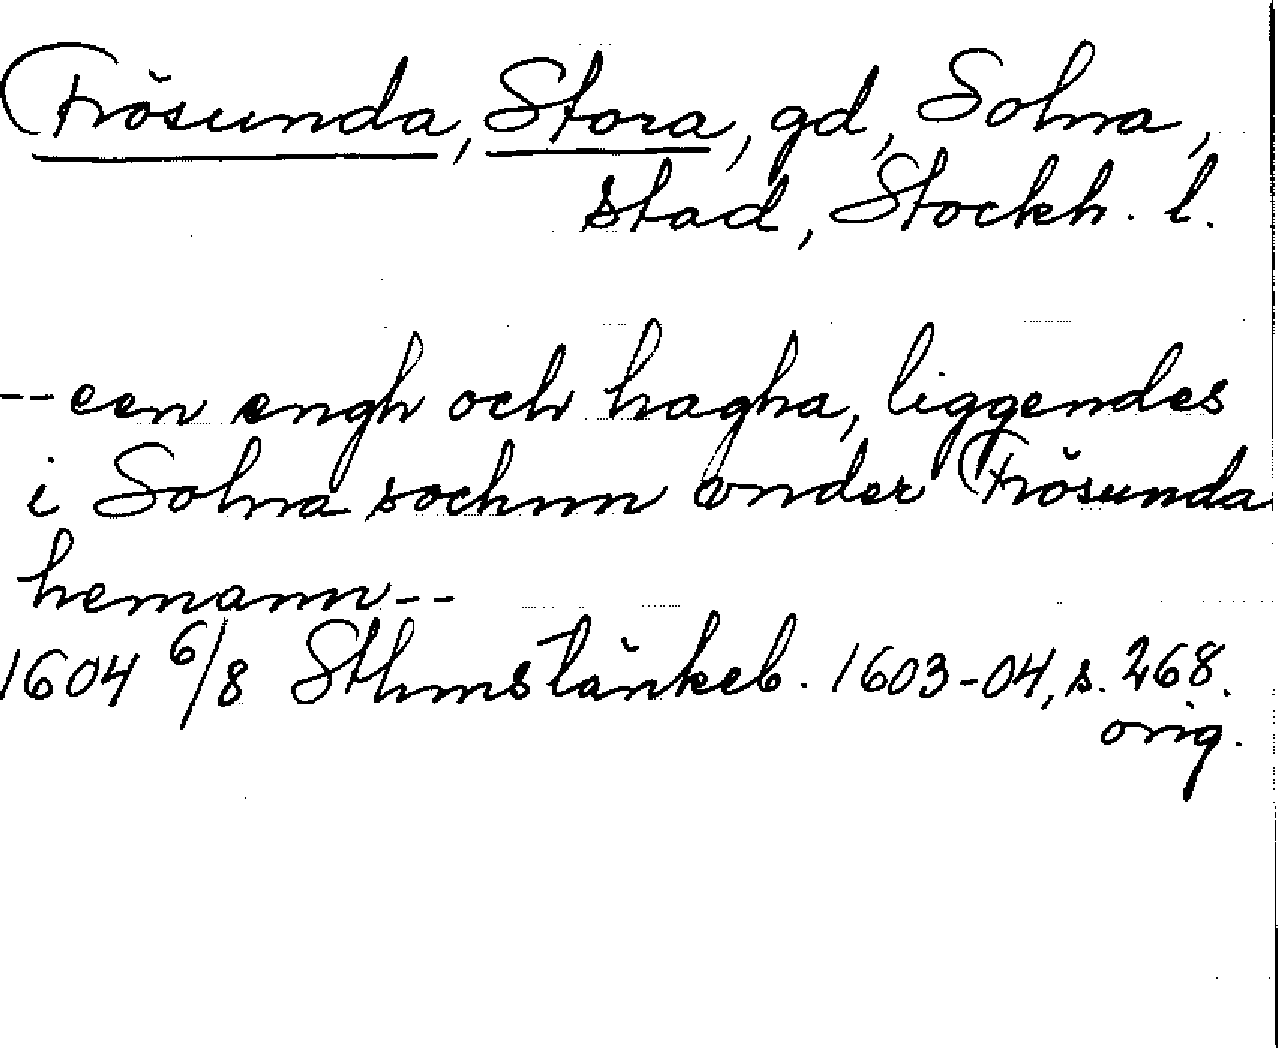 Frösunda, Stora, gd, Solna,
stad, Stockh. l.
--een engh och hagha, liggendes
i Solna sochnn vnder Frösunda
hemann--
1604 6/8 Sthms tänkeb. 1603-04, s. 268.
orig.